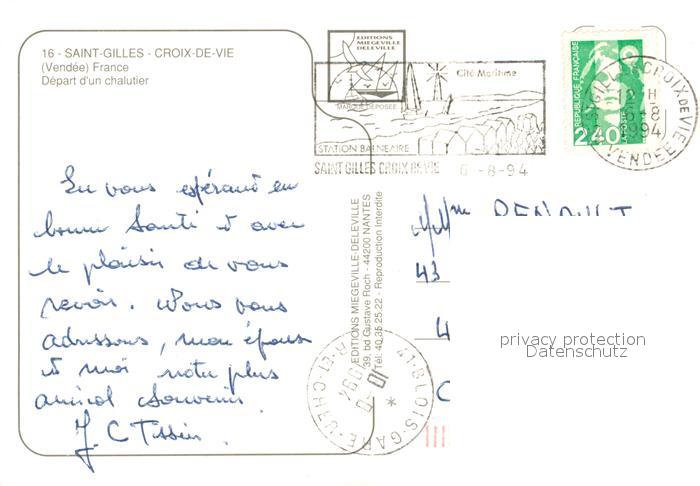 16 - SAINT-GILLES - CROIX-DE-VIE
(Vendée) France
Départ d'un chalutier
EDITIONS
MIEGEVILLE
DELEVILLE
MARQUE DEPOSEE
Cité Maritime
STATION BALNEAIRE
SAINT GILLES CROIX DE VIE 6-8-94
REPUBLIQUE FRANÇAISE
2,40
LA POSTE
ST GILLES CROIX DE VIE
12 H
6-8
1994
VENDEE
En vous espérant en
bonne Santé et avec
le plaisir de vous
revoir. Nous vous
adressons, mon époux
et moi notre plus
amical souvenir.
J. C Tissin
EDITIONS MIEGEVILLE-DELEVILLE
39, bd Gustave Roch - 44200 NANTES
Tél. 40 35 25 22 - Reproduction Interdite
41-BLOIS-GARE
1994
43
privacy protection
Datenschutz